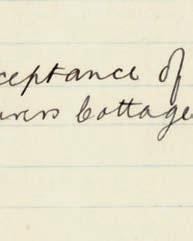 ceptance of
urers Cottage